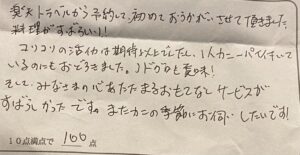 楽天トラベルから予約して、初めておうかがいさせて頂きました。
料理がすばらしい!!
コリコリの活イカは期待以上でしたし、1人カニ一パイ付いて
いるのにもおどろきました。ノドグロも美味!
そして、みなさまの心あたたまるおもてなし サービスが
すばらしかったです。またカニの季節にお伺いしたいです!
10点満点で 100 点